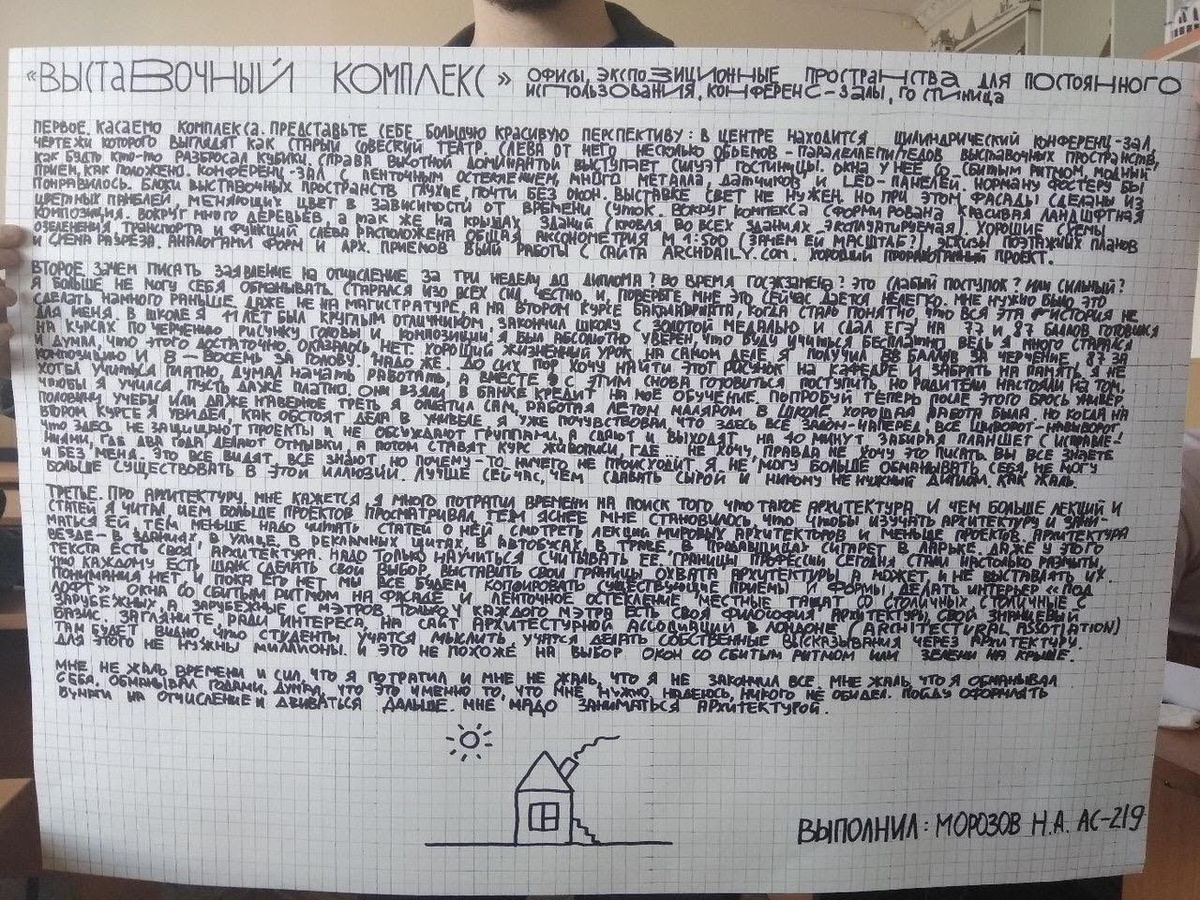 «ВЫСТАВОЧНЫЙ КОМПЛЕКС» ОФИСЫ, ЭКСПОЗИЦИОННЫЕ ПРОСТРАНСТВА ДЛЯ ПОСТОЯННОГО
ИСПОЛЬЗОВАНИЯ, КОНФЕРЕНС-ЗАЛЫ, ГОСТИНИЦА
ПЕРВОЕ. КАСАЕМО КОМПЛЕКСА. ПРЕДСТАВЬТЕ СЕБЕ БОЛЬШУЮ КРАСИВУЮ ПЕРСПЕКТИВУ: В ЦЕНТРЕ НАХОДИТСЯ ЦИЛИНДРИЧЕСКИЙ КОНФЕРЕНЦ-ЗАЛ,
ЧЕРТЕЖИ КОТОРОГО ВЫГЛЯДЯТ КАК СТАРЫЙ СОВЕСКИЙ ТЕАТР. СЛЕВА ОТ НЕГО НЕСКОЛЬКО ОБЪЕМОВ - ПАРАЛЛЕЛЕПИПЕДОВ ВЫСТАВОЧНЫХ ПРОСТРАНСТВ,
КАК БУДТО КТО-ТО РАЗБРОСАЛ КУБИКИ. СПРАВА ВЫСОТНОЙ ДОМИНАНТОЙ ВЫСТУПАЕТ ГОСТИНИЦЫ. ОКНА У НЕЕ СО СБИТЫМ РИТМОМ, МОДНЫЙ
ПРИЕМ, КАК ПОЛОЖЕНО. КОНФЕРЕНЦ-ЗАЛ С ЛЕНТОЧНЫМ ОСТЕКЛЕНИЕМ, МНОГО МЕТАЛЛА ДАТЧИКОВ И LED-ПАНЕЛЕЙ. НОРМАНУ ФОСТЕРУ БЫ
ПОНРАВИЛОСЬ. БЛОКИ ВЫСТАВОЧНЫХ ПРОСТРАНСТВ ГЛУХИЕ, ПОЧТИ БЕЗ ОКОН. ВЫСТАВКЕ СВЕТ НЕ НУЖЕН, НО ПРИ ЭТОМ ФАСАДЫ СДЕЛАНЫ ИЗ
ЦВЕТНЫХ ПАНЕЛЕЙ, МЕНЯЮЩИХ ЦВЕТ В ЗАВИСИМОСТИ ОТ ВРЕМЕНИ СУТОК. ВОКРУГ КОМПЕКСА СФОРМИРОВАНА КРАСИВАЯ ЛАНДШФТНАЯ
КОМПОЗИЦИЯ. ВОКРУГ МНОГО ДЕРЕВЬЕВ, А ТАК ЖЕ НА КРЫШАХ ЗДАНИЙ (КРОВЛЯ ВО ВСЕХ ЗДАНИЯХ ЭКСПЛУАТИРУЕМАЯ). ХОРОШИЕ СХЕМЫ
ОЗЕЛЕНЕНИЯ ТРАНСПОРТА И ФУНКЦИЙ СЛЕВА РАСПОЛОЖЕНА ОБЩАЯ АКСОНОМЕТРИЯ М 1:500 (ЗАЧЕМ ЕЙ МАСШТАБ?), ЭСКИЗЫ ПОЭТАЖНЫХ ПЛАНОВ
И СХЕМА РАЗРЕЗА. АНАЛОГАМИ ФОРМ И АРХ. ПРИЕМОВ РАБОТЫ С САЙТА ARCHDAILY.COM. ХОРОШИЙ ПРОРАБОТАННЫЙ ПРОЕКТ.
ВТОРОЕ. ЗАЧЕМ ПИСАТЬ ЗАЯВЛЕНИЕ НА ОТЧИСЛЕНИЕ ЗА ТРИ НЕДЕЛИ ДО ДИПЛОМА? ВО ВРЕМЯ ГОСЭКЗАМЕНА? ЭТО СЛАБЫЙ ПОСТУПОК? ИЛИ СИЛЬНЫЙ?
Я БОЛЬШЕ НЕ МОГУ СЕБЯ ОБМАНЫВАТЬ. СТАРАЛСЯ ИЗО ВСЕХ СИЛ, ЧЕСТНО И, ПОВЕРЬТЕ МНЕ ЭТО СЕЙЧАС ДАЕТСЯ НЕЛЕГКО. МНЕ НУЖНО БЫЛО ЭТО
СДЕЛАТЬ НАМНОГО РАНЬШЕ, ДАЖЕ НЕ НА МАГИСТРАТУРЕ, А НА ВТОРОМ КУРСЕ БАКЛАВРИАТА, КОГДА СТАЛО ПОНЯТНО ЧТО ВСЯ ЭТА ИСТОРИЯ НЕ
ДЛЯ МЕНЯ. В ШКОЛЕ Я 11 ЛЕТ БЫЛ КРУГЛЫМ ОТЛИЧНИКОМ, ЗАКОНЧИЛ ШКОЛУ С ЗОЛОТОЙ МЕДАЛЬЮ И СДАЛ ЕГЭ НА 77 И 87 БАЛЛОВ, ГОТОВИЛСЯ
НА КУРСАХ ПО ЧЕРЧЕНИЮ РИСУНКУ ГОЛОВЫ И КОМПОЗИЦИИ. Я БЫЛ АБСОЛЮТНО УВЕРЕН, ЧТО БУДУ УЧИТЬСЯ БЕСПЛАТНО ВЕДЬ Я МНОГО СТАРАЛСЯ
И ДУМАЛ, ЧТО ЭТОГО ДОСТАТОЧНО. ОКАЗАЛОСЬ, НЕТ. ХОРОШИЙ ЖИЗНЕННЫЙ УРОК НА САМОМ ДЕЛЕ. Я ПОЛУЧИЛ 88 БАЛЛОВ ЗА ЧЕРЧЕНИЕ, 87 ЗА
КОМПОЗИЦИЮ И 8 - ВОСЕМЬ ЗА ГОЛОВУ. НАДО ЖЕ. ДО СИХ ПОР ХОЧУ НАЙТИ ЭТОТ РИСУНОК НА КАФЕДРЕ И ЗАБРАТЬ НА ПАМЯТЬ. Я НЕ
ХОТЕЛ УЧИТЬСЯ ПЛАТНО, ДУМАЛ НАЧАТЬ РАБОТАТЬ, А ВМЕСТЕ С ЭТИМ СНОВА ГОТОВИТЬСЯ К ПОСТУПЛЕНИЮ, НО РОДИТЕЛИ НАСТОЯЛИ НА ТОМ,
ЧТОБЫ Я УЧИЛСЯ ПУСТЬ ДАЖЕ ПЛАТНО ОНИ ВЗЯЛИ В БАНКЕ КРЕДИТ НА МОЕ ОБУЧЕНИЕ. ПОПРОБУЙ ТЕПЕРЬ ПОСЛЕ ЭТОГО БРОСЬ УНИВЕР.
ПОЛОВИНУ УЧЕБЫ ИЛИ ДАЖЕ НАВЕРНОЕ ТРЕТЬ Я ОПЛАТИЛ САМ, РАБОТАЯ ЛЕТОМ МАЛЯРОМ В ШКОЛЕ. ХОРОШАЯ РАБОТА БЫЛА. НО КОГДА НА
ВТОРОМ КУРСЕ Я УВИДЕЛ, КАК ОБСТОЯТ ДЕЛА В УНИВЕРЕ, Я УЖЕ ПОЧУВСТВОВАЛ, ЧТО ЗДЕСЬ ВСЕ ЗАДОМ-НАПЕРЕД, ВСЕ ШИВОРОТ-НАВЫВОРОТ
ЧТО ЗДЕСЬ НЕ ЗАЩИЩАЮТ ПРОЕКТЫ И НЕ ОБСУЖДАЮТ ГРУППАМИ, А СДАЮТ И ВЫХОДЯТ НА 40 МИНУТ ЗАБИРАЯ ПЛАНШЕТ С ИСПРАВЛЕ-
НИЯМИ, ГДЕ ДВА ГОДА ДЕЛАЮТ ОТМЫВКИ, А ПОТОМ СТАВЯТ КУРС ЖИВОПИСИ ГДЕ... НЕ ХОЧУ, ПРАВДА НЕ ХОЧУ ЭТО ПИСАТЬ. ВЫ ВСЕ ЗНАЕТЕ
И БЕЗ МЕНЯ. ЭТО ВСЕ ВИДЯТ, ВСЕ ЗНАЮТ, НО ПОЧЕМУ-ТО НИЧЕГО НЕ ПРОИСХОДИТ. Я НЕ МОГУ БОЛЬШЕ ОБМАНЫВАТЬ СЕБЯ, НЕ МОГУ
БОЛЬШЕ СУЩЕСТВОВАТЬ В ЭТОЙ ИЛЛЮЗИИ. ЛУЧШЕ СЕЙЧАС, ЧЕМ СДАВАТЬ СЫРОЙ И НИКОМУ НЕ НУЖНЫЙ ДИПЛОМ. КАК ЖАЛЬ.
ТРЕТЬЕ. ПРО АРХИТЕКТУРУ. МНЕ КАЖЕТСЯ, Я МНОГО ПОТРАТИЛ ВРЕМЕНИ НА ПОИСК ТОГО ЧТО ТАКОЕ АРХИТЕКТУРА. И ЧЕМ БОЛЬШЕ ЛЕКЦИЙ И
СТАТЕЙ Я ЧИТАЛ, ЧЕМ БОЛЬШЕ ПРОЕКТОВ ПРОСМАТРИВАЛ, ТЕМ ЯСНЕЕ МНЕ СТАНОВИЛОСЬ, ЧТО ЧТОБЫ ИЗУЧАТЬ АРХИТЕКТУРУ И ЗАНИ-
МАТЬСЯ ЕЙ, ТЕМ МЕНЬШЕ НАДО ЧИТАТЬ СТАТЕЙ О НЕЙ, СМОТРЕТЬ ЛЕКЦИЙ МИРОВЫХ АРХИТЕКТОРОВ И МЕНЬШЕ ПРОЕКТОВ. АРХИТЕКТУРА
ВЕЗДЕ - В ЗДАНИЯХ, В УЛИЦЕ, В РЕКЛАМНЫХ ЩИТАХ, В АВТОБУСАХ, В ТРАВЕ, В ПРОДАВЩИЦАХ СИГАРЕТ В ЛАРЬКЕ. ДАЖЕ У ЭТОГО
ТЕКСТА ЕСТЬ СВОЯ АРХИТЕКТУРА. НАДО ТОЛЬКО НАУЧИТЬСЯ СЧИТЫВАТЬ ЕЕ. ГРАНИЦЫ ПРОФЕССИИ СЕГОДНЯ СТАЛИ НАСТОЛЬКО РАЗМЫТЫ,
ЧТО КАЖДОМУ ЕСТЬ ШАНС СДЕЛАТЬ СВОЙ ВЫБОР, ВЫСТАВИТЬ СВОИ ГРАНИЦЫ ОХВАТА АРХИТЕКТУРЫ А МОЖЕТ И НЕ ВЫСТАВЛЯТЬ ИХ.
ПОНИМАНИЯ НЕТ, И ПОКА ЕГО НЕТ МЫ ВСЕ БУДЕМ КОПИРОВАТЬ СУЩЕСТВУЮЩИЕ ПРИЕМЫ И ФОРМЫ, ДЕЛАТЬ ИНТЕРЬЕР «ПОД
ЛОФТ», ОКНА СО СБИТЫМ РИТМОМ НА ФАСАДЕ И ЛЕНТОЧНОЕ ОСТЕКЛЕНИЕ. МЕСТНЫЕ ТАЩАТ СО СТОЛИЧНЫХ, СТОЛИЧНЫЕ С
ЗАРУБЕЖНЫХ, А ЗАРУБЕЖНЫЕ С МЭТРОВ, ТОЛЬКО У КАЖДОГО МЭТРА ЕСТЬ СВОЯ ФИЛОСОФИЯ АРХИТЕКТУРЫ, СВОЙ ЗНАНИЕВЫЙ
БАЗИС. ЗАГЛЯНИТЕ, РАДИ ИНТЕРЕСА, НА САЙТ АРХИТЕСТУРНОЙ АССОЦИАЦИИ В ЛОНДОНЕ (ARCHITECTURAL ASSOTIATION)
ТАМ БУДЕТ ВИДНО, ЧТО СТУДЕНТЫ УЧАТСЯ МЫСЛИТЬ, УЧАТСЯ ДЕЛАТЬ СОБСТВЕННЫЕ ВЫСКАЗЫВАНИЯ ЧЕРЕЗ АРХИТЕКТУРУ.
ДЛЯ ЭТОГО НЕ НУЖНЫ МИЛЛИОНЫ. И ЭТО НЕ ПОХОЖЕ НА ВЫБОР ОКОН СО СБИТЫМ РИТМОМ ИЛИ ЗЕЛЕНИ НА КРЫШЕ.
МНЕ НЕ ЖАЛЬ ВРЕМЕНИ И СИЛ, ЧТО Я ПОТРАТИЛ И МНЕ НЕ ЖАЛЬ, ЧТО Я НЕ ЗАКОНЧИЛ ВСЕ. МНЕ ЖАЛЬ, ЧТО Я ОБМАНЫВАЛ
СЕБЯ. ОБМАНЫВАЛ ГОДАМИ, ДУМАЯ, ЧТО ЭТО ИМЕННО ТО, ЧТО МНЕ НУЖНО. НАДЕЮСЬ, НИКОГО НЕ ОБИДЕЛ. ПОЙДУ ОФОРМЛЯТЬ
БУМАГИ НА ОТЧИСЛЕНИЕ И ДВИГАТЬСЯ ДАЛЬШЕ. МНЕ НАДО ЗАНИМАТЬСЯ АРХИТЕКТУРОЙ.
ВЫПОЛНИЛ: МОРОЗОВ Н.А. АС-219